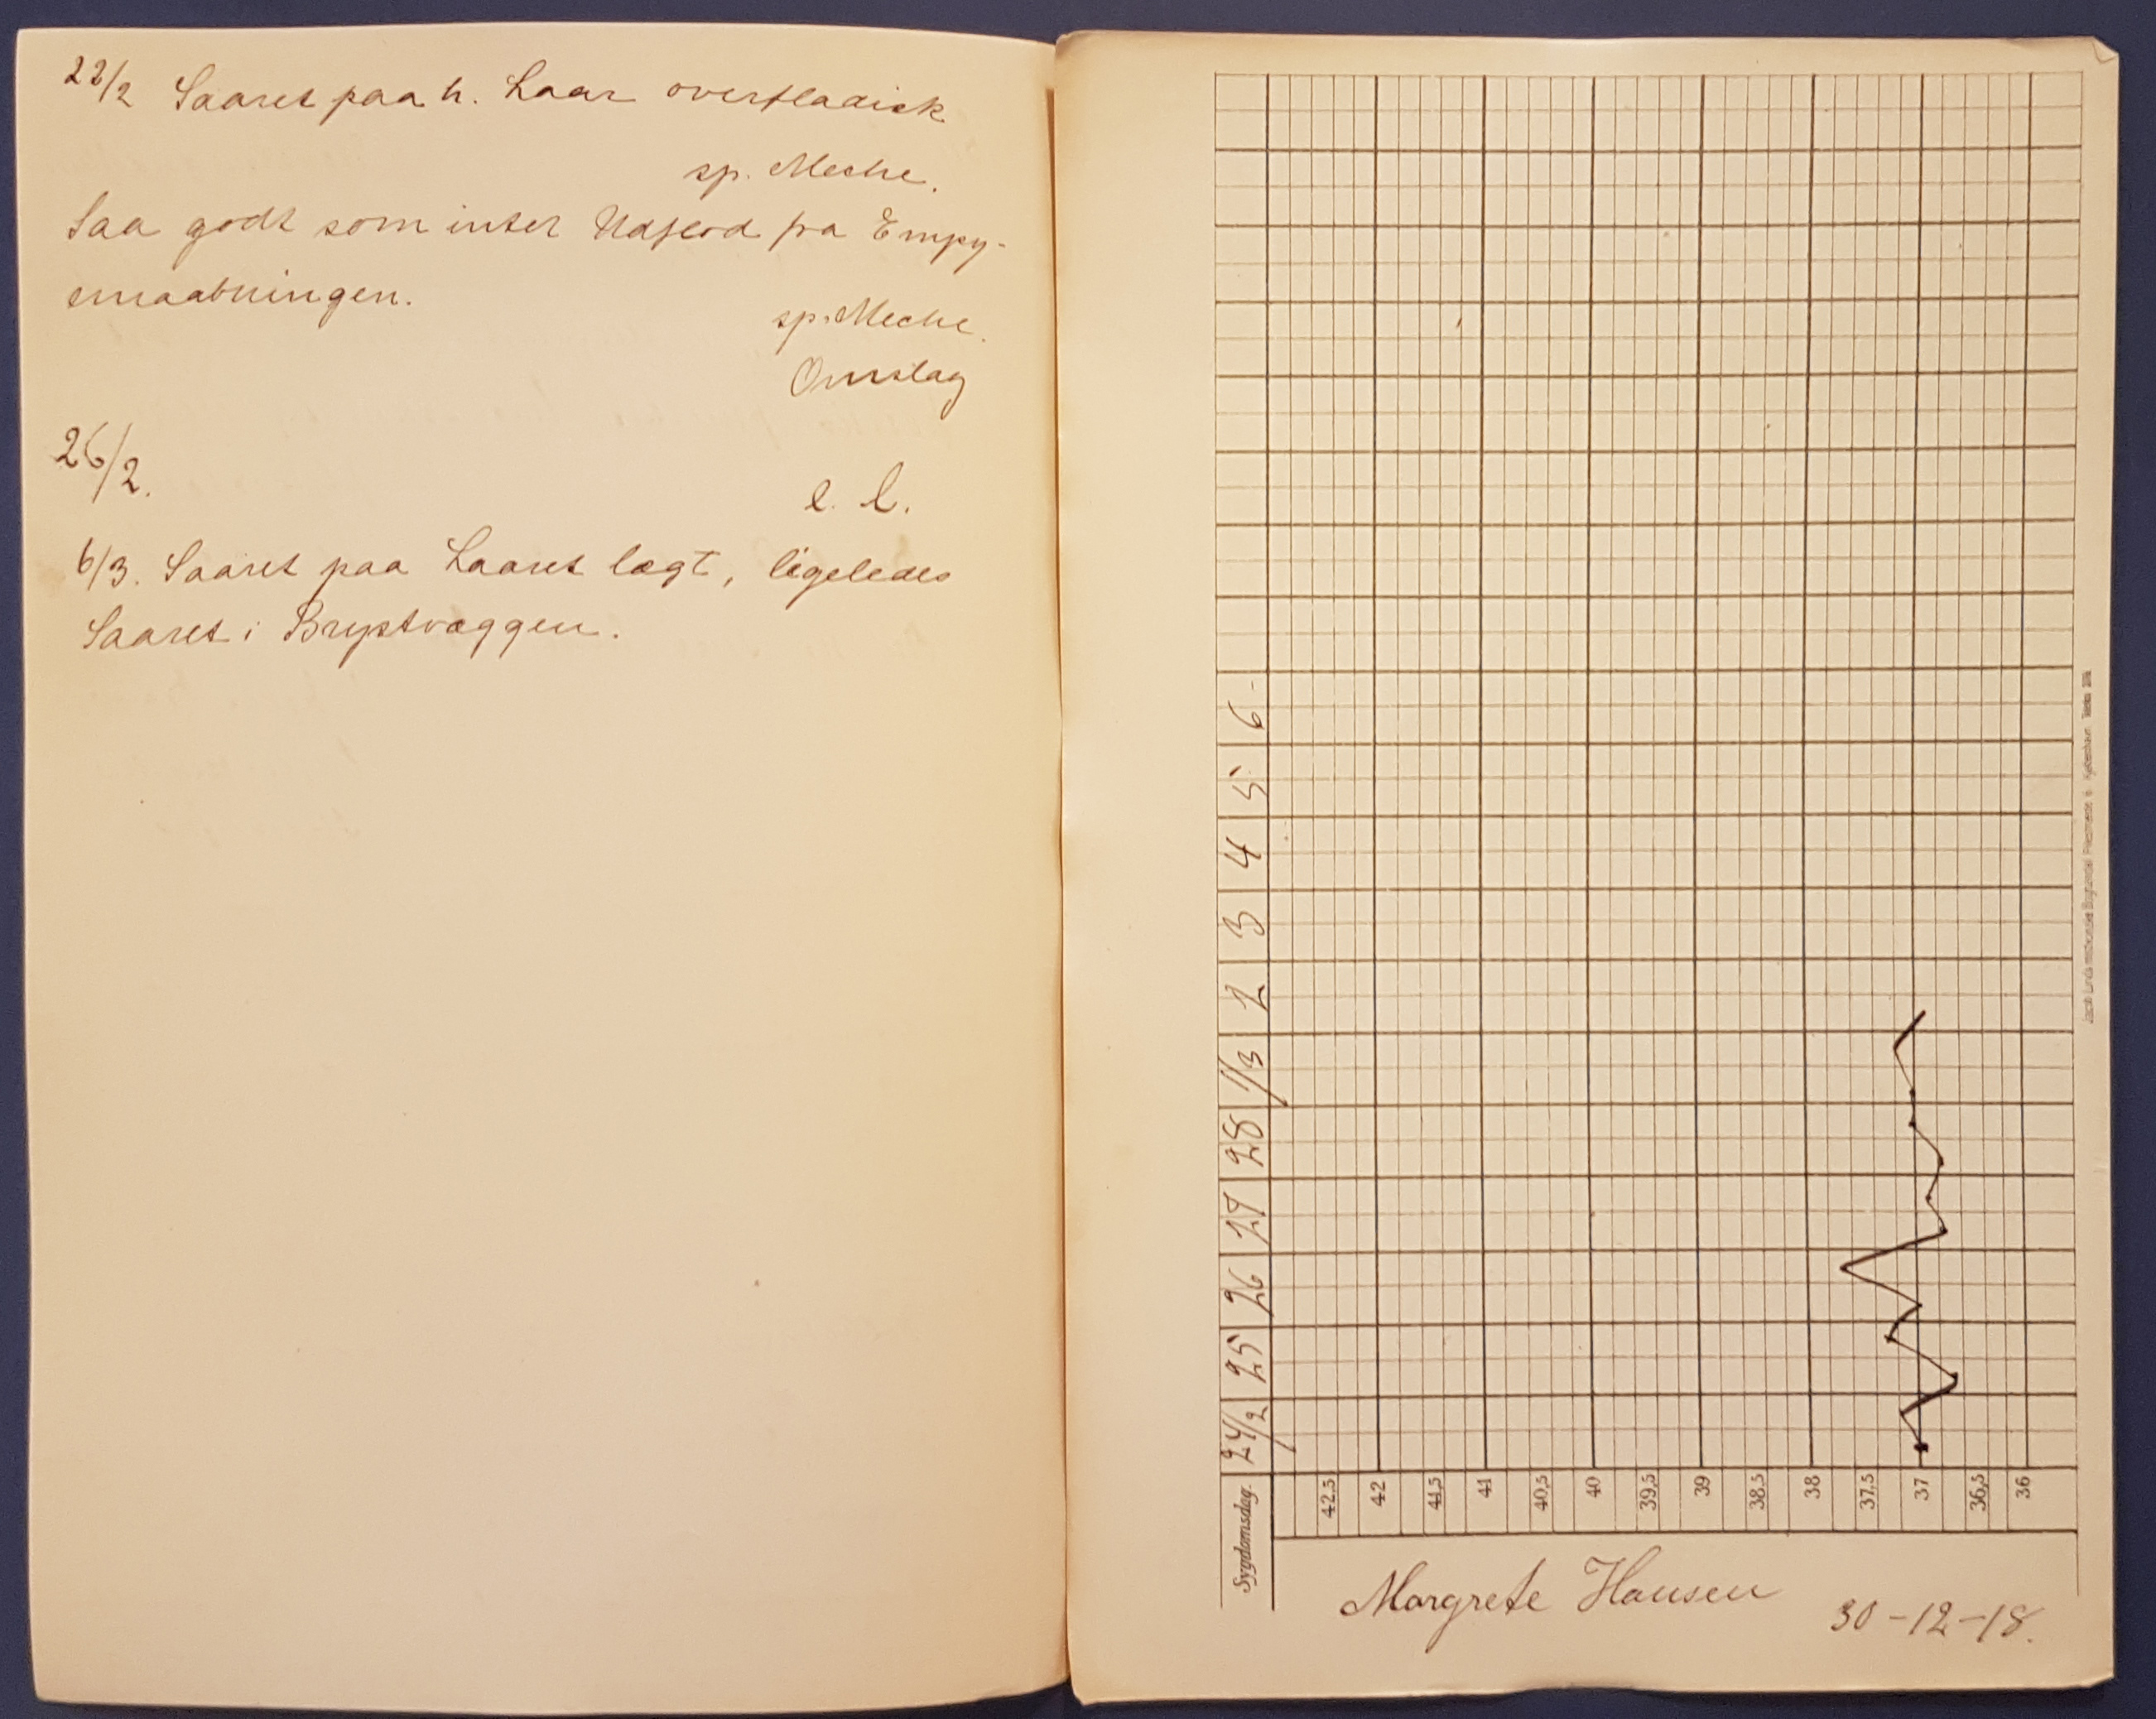 22/2 Saaret paa h. Laar overfladisk
sp. Meche.
Saa godt som intet Udflod fra Empy-
emaabningen.
sp. Meche.
Omslag
26/2.
l. l.
6/3. Saaret paa Laaret lægt, ligeledes
Saaret i Brystvæggen.
Sygdomsdag. 24/2 25 26 27 28 1/3 2 3 4 5 6
42,5 42 41,5 41 40,5 40 39,5 39 38,5 38 37,5 37 36,5 36
Margrete Hansen 30-12-18.
Jacob Lunds medicinske Boghandel